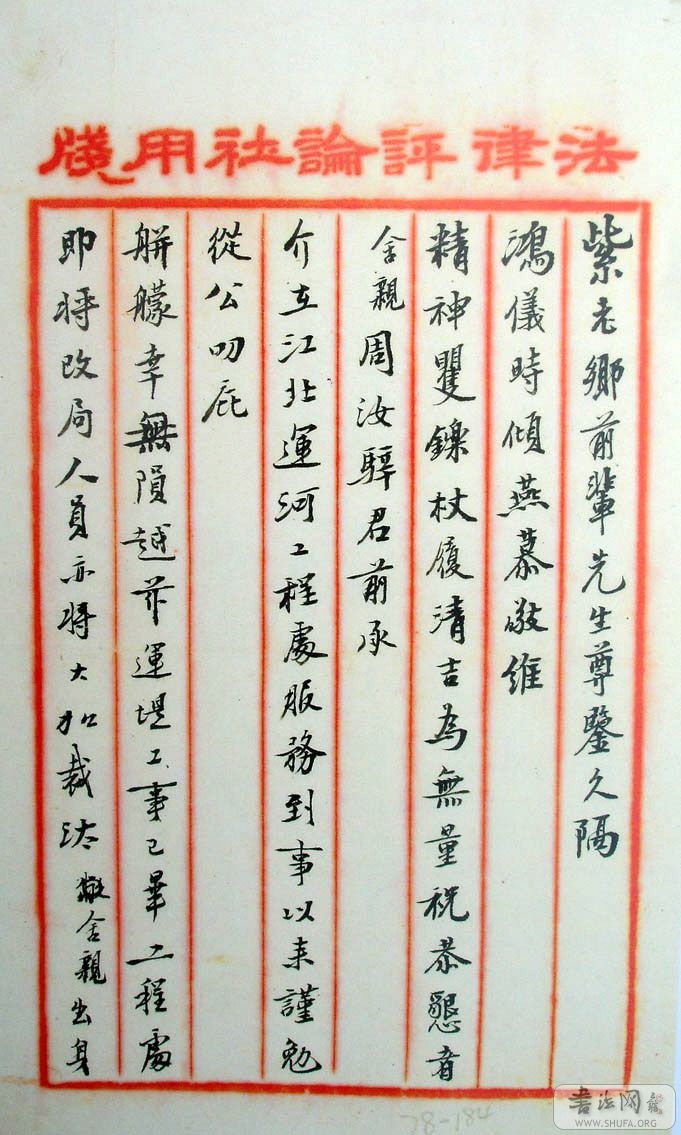 法律評論社用牋
紫老鄉前輩先生尊鑒久隔
鴻儀時傾燕慕敬維
精神矍鑠杖履清吉為無量祝恭懇者
舍親周汝驊君前承
介在江北運河工程處服務到事以來謹勉
從公叨庇
帡幪幸無隕越茲運堤工事已畢工程處
即將改局人員亦將大加裁汰敝舍親出身
78-184
书法网
WWW.SHUFA.ORG